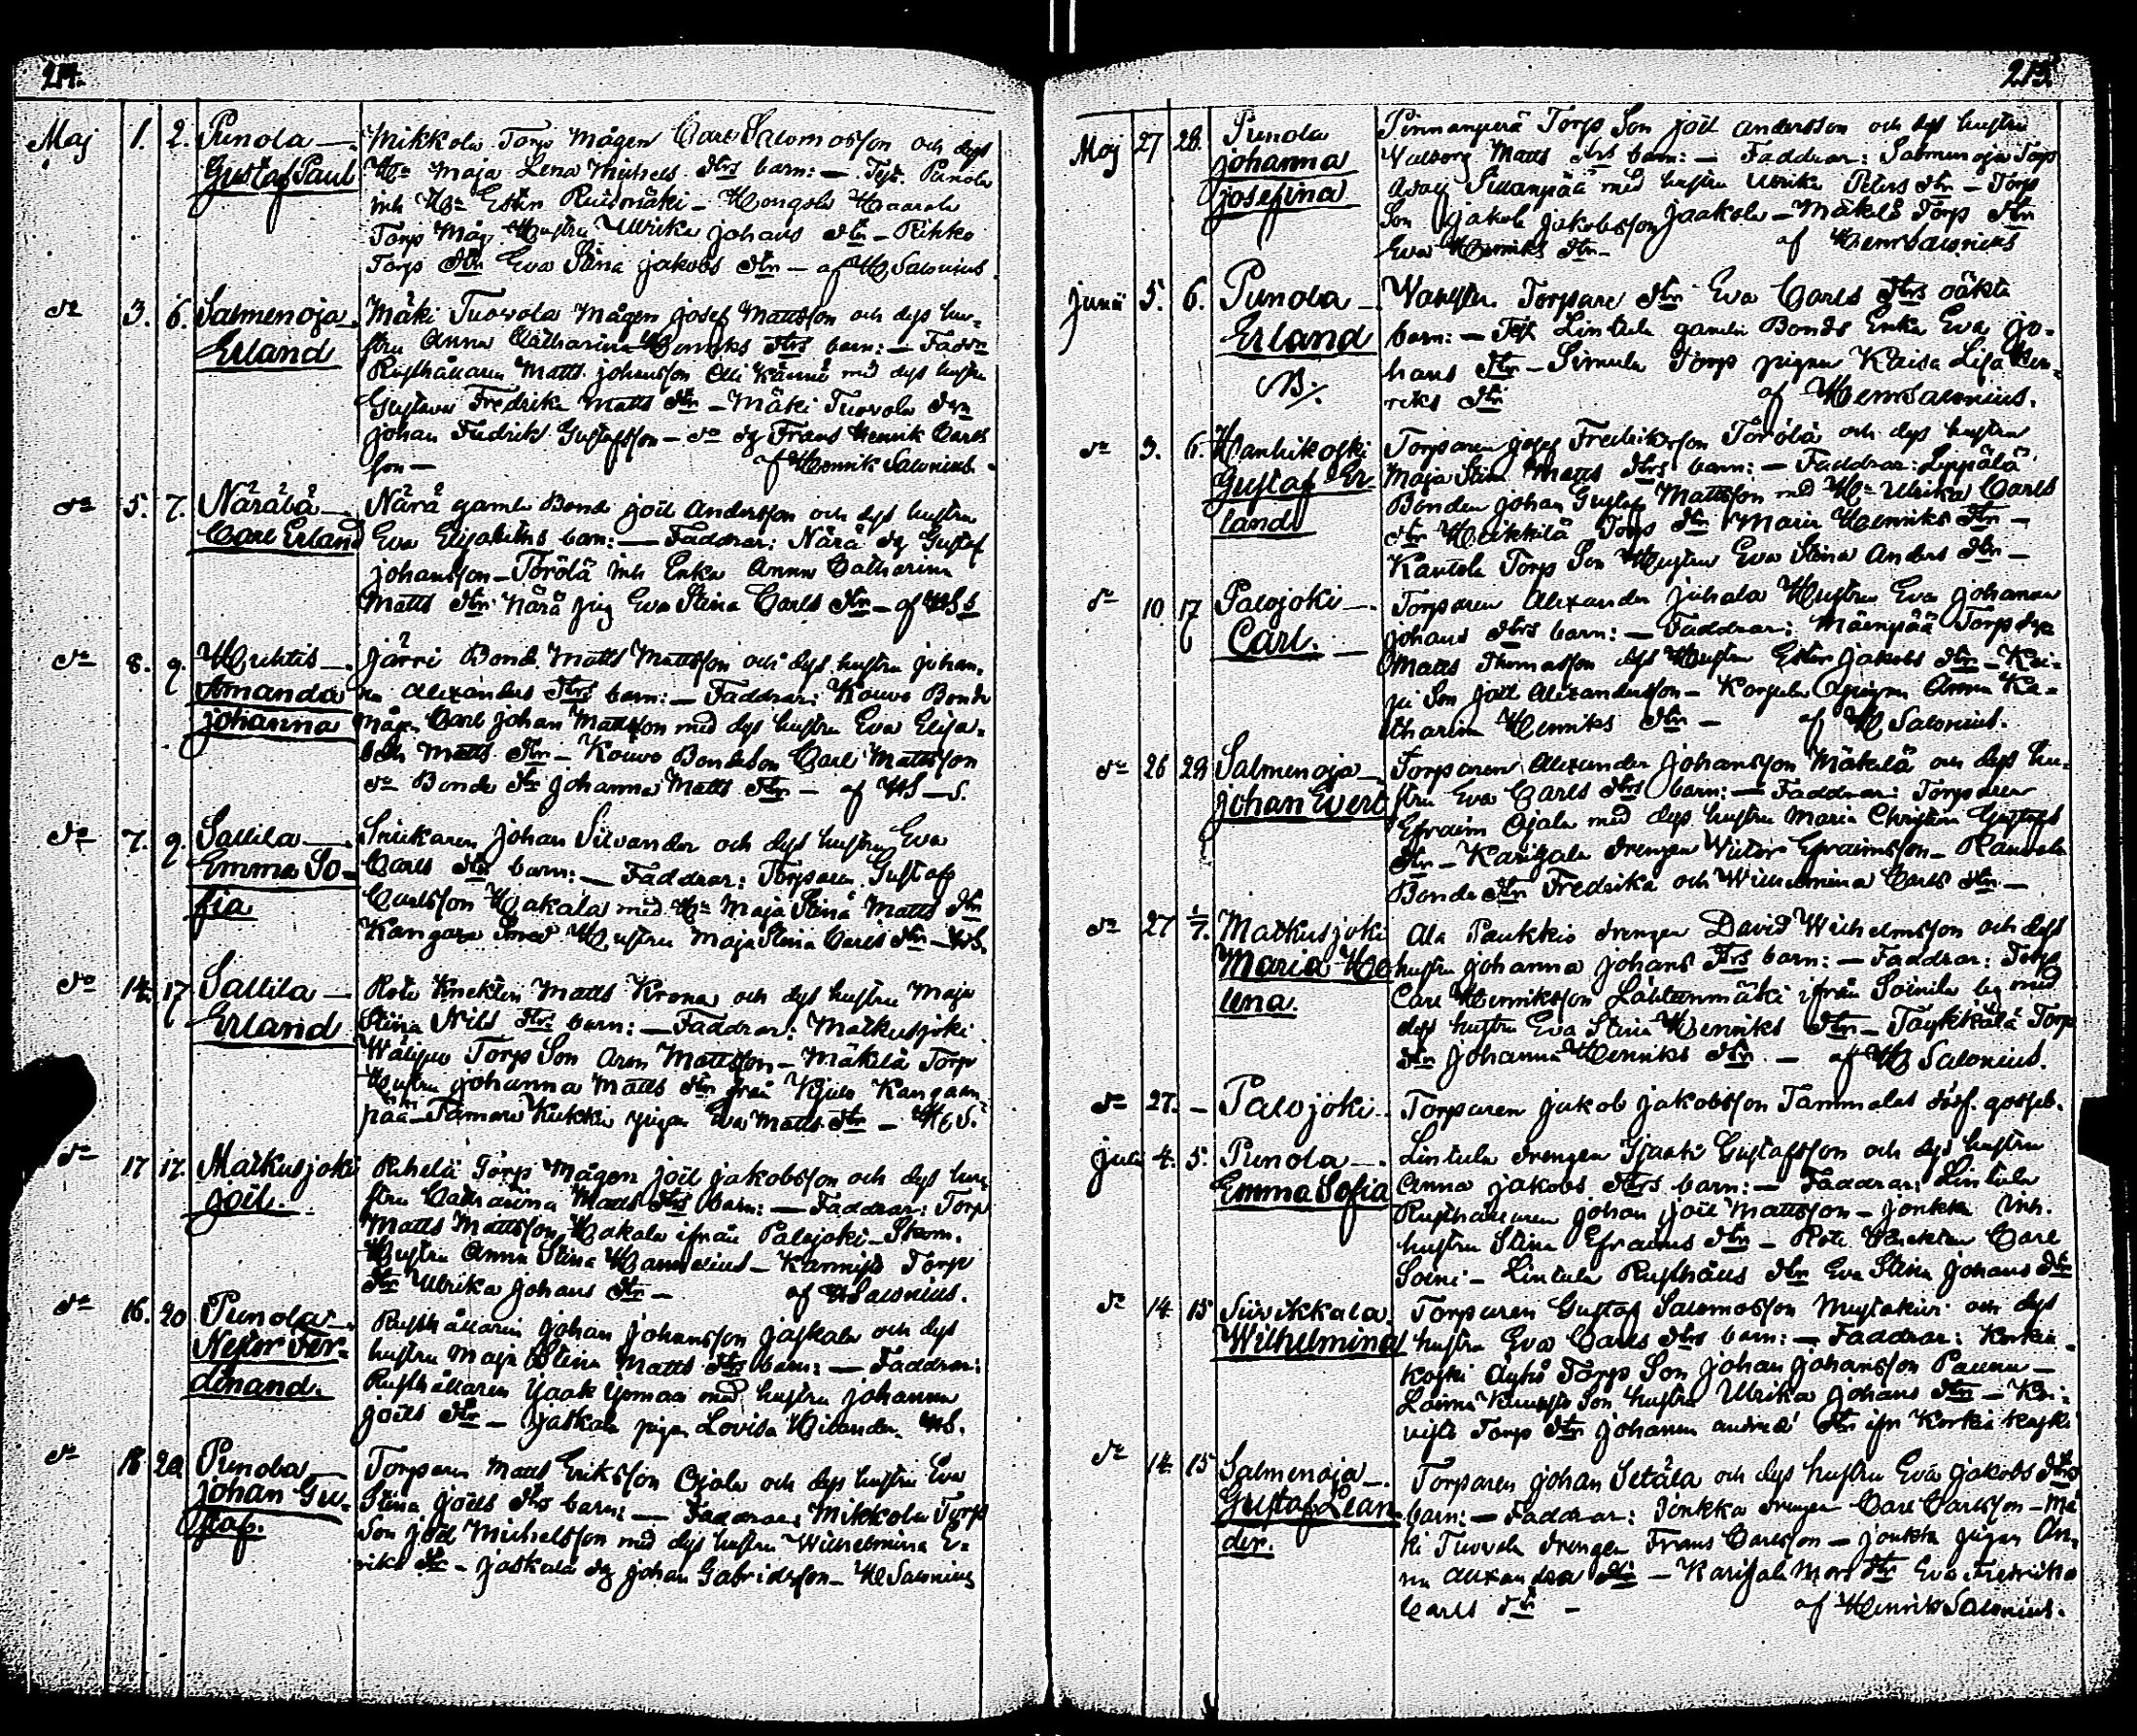 214.
Maj 1. 2. Punola —. Mikkola Torp Mågen Carl Salomosson och dess
Gustaf Paul Hu Maja Lena Michels dtrs barn: — Test. Punola
inh Hu Ester Ruisomäki — Hongola Haarala
Torp Måg Hustru Ulrika Johans dtr — Pihko
Torp dtr Eva Stina Jakobs dtr — af H Salonius
dn 3. 6. Salmenoja —. Mäki Tuovola Mågen Josef Mattsson och dess hu-
Erland stru Anna Catharina Henriks dtrs barn: — Faddr
Rusthållaren Matts Johansson Olli Kännö med dess hustru
Gustava Fredrika Matts dtr — Mäki Tuovola drg
Johan Fredrik Gustafsson — dn dg Frans Henrik Carls
son — af Henrik Salonius.
dn 5. 7. Näräbä —. Närä gamla Bond Joel Andersson och dess hustru
Carl Erland Eva Elisabeths barn: — Faddrar: Närä dg Gustaf
Johansson — Törölä inh Enka Anna Catharina
Matts dtr Närä pig Eva Stina Carls dtr — af HS
dn 8. 9. Huhtis —. Järri Bond Matts Mattsson och dess hustru Johan-
Amanda na Alexanders dtrs barn: — Faddrar: Kouvo Bonde
Johanna Mågen Carl Johan Mattsson med dess hustru Eva Elisa-
beth Matts dtr — Kouvo Bondeson Carl Mattsson
dn Bonde dtr Johanna Matts dtr — af HS —.
dn 7. 9. Sallila —. Snickaren Johan Silvander och dess hustru Eva
Emma So- Carls dtr barn: — Faddrar: Torparen Gustaf
fia Carlsson Hakala med Hu Maja Stina Matts dtr
Kangara Smed Hustru Maja Stina Carls dtr — HS.
dn 14. 17 Sallila —. Rote Knekten Matts Krona och dess hustru Maja
Erland Stina Nils dtrs barn: — Faddrar: Matkusjoki
Torp Son Aron Mattsson — Mäkelä Torp
Hustru Johanna Matts dtr från Kjulo Kangam
pää — Tamare Kukku pigan Eva Matts dtr — H.S.
dn 17 17. Matkusjoki Rihelä Torp Mågen Joel Jakobsson och dess hu-
Joel. stru Catharina Matts dtrs barn: — Faddrar: Torp
Matts Mattsson Hakala ifrån Palojoki — Skom.
Hustru Anna Stina — Kannisto Torp
dtr Ulrika Johans dtr — af HSalonius.
dn 16. 20 Punola —. Rusthållaren Johan Johansson Jaskala och dess
Nestor Fer- hustru Maja Stina Matts dtrs barn: — Faddrar:
dinand. Rusthållaren Isaak Ypmaa med hustru Johanna
Joels dtr — Jaskala pigan Lovisa Hilander. HS.
dn 18 20 Punola — Torparen Matts Eriksson Ojala och dess hustru Eva
Johan Gu- Stina Joels dtrs barn: — Faddrar: Mikkola Torp
staf. Son Joel Michelsson med dess hustru Wilhelmina E-
riks dtr — Jaskala dg Johan Gabrielsson — H Salonius
215.
Maj 27 28. Punola Pinnanperä Torp Son Joel Andersson och dess hustru
Johanna Walborg Matts dtrs barn: — Faddrar: Salmenoja Torp
Josefina Sillanpää med hustru Ulrika Peters dtr — Torp
Son Jakob Jakobsson Jaakola — Mäkelä Torp dtr
Eva Henriks dtr — af HenrSalonius
Junii 5. 6. Punola —. Torpare dtr Eva Carls dtrs oäkta
Erland barn: — Test Lintula gamla Bonds Enka Eva Jo-
hans dtr — Simula Torp pigan Kaisa Lisa Hen-
riks dtr af HenrSalonius.
dn 3. 6. Hanhikoski Torparen Josef Fredriksson Törölä och dess hustru
Gustaf Er- Maja Stina Matts dtrs barn: — Faddrar: Leppälä
land Bonden Johan Gustaf Mattsson med Hu Ulrika Carls
dtr Heikkilä Torp dtr Maria Henriks dtr —
Kantola Torp Son Hustru Eva Stina Anders dtr —
dn 10. 17 Palojoki —. Torparen Alexander Juhala Hustru Eva Johanna
Carl. — Johans dtrs barn: — Faddrar: Mäenpää Torp
Matts Thomasson dess Hustru Ester Jakobs dtr —
Son Joel Alexandersson — Korpela pigan Anna Ka-
tharina Henriks dtr — af H Salonius.
dn 26 29 Salmenoja —. Torparen Alexander Johansson Mäkelä och dess hu-
Johan Evert stru Eva Carls dtrs barn: — Faddrar: Torparen
Efraim Ojala med dess hustru Maria Christina Gustafs
dtr — Karhala drengen Victor Efraimsson — Rannela
Bonde dtr Fredrika och Wilhelmina Carls dtr —
dn 27 1/7. Matkusjoki Ala Paukkio drengen David Wilhelmsson och dess
Maria He- hustru Johanna Johans dtrs barn: — Faddrar: Torp
lena. Carl Henriksson Lähteenmäki ifrån Soinila by med
dess hustru Eva Stina Henriks dtr — Torp
dtr Johanna Henriks dtr. — af H Salonius.
dn 27. — Palojoki. Torparen Jakob Jakobsson Tammelas dödf. gosseb.
Juli 4. 5. Punola —. Lintula drengen Isaak Gustafsson och dess hustru
Emma Sofia Anna Jakobs dtrs barn: — Faddrar: Lintula
Rusthållaren Johan Joel Mattsson — Jonkka Inh.
hustru Stina Efraims dtr — Rote Knekten Carl
Soini — Lintula Rusthålls dtr Eva Stina Johans dtr
dn 14. 15 Suvikkala Torparen Gustaf Salomosson Mustakivi och dess
Wilhelmina hustru Eva Carls dtrs barn: — Faddrar: Korkia-
koski Torp Son Johan Johansson —
Son hustru Ulrika Johans dtr —
Torp dtr Johanna dtr ifr Korkiakoski
dn 14. 15 Salmenoja —. Torparen Johan Setälä och dess hustru Eva Jakobs dtrs
Gustaf Lean- barn: — Faddrar: Jonkka drengen Carl Carlsson — Mä
der. ki Tuovola drengen Frans Carlsson — Jonkka pigan An-
na Alexandra dtr — dtr Eva Fredrika
Carls dtr — af Henrik Salonius.